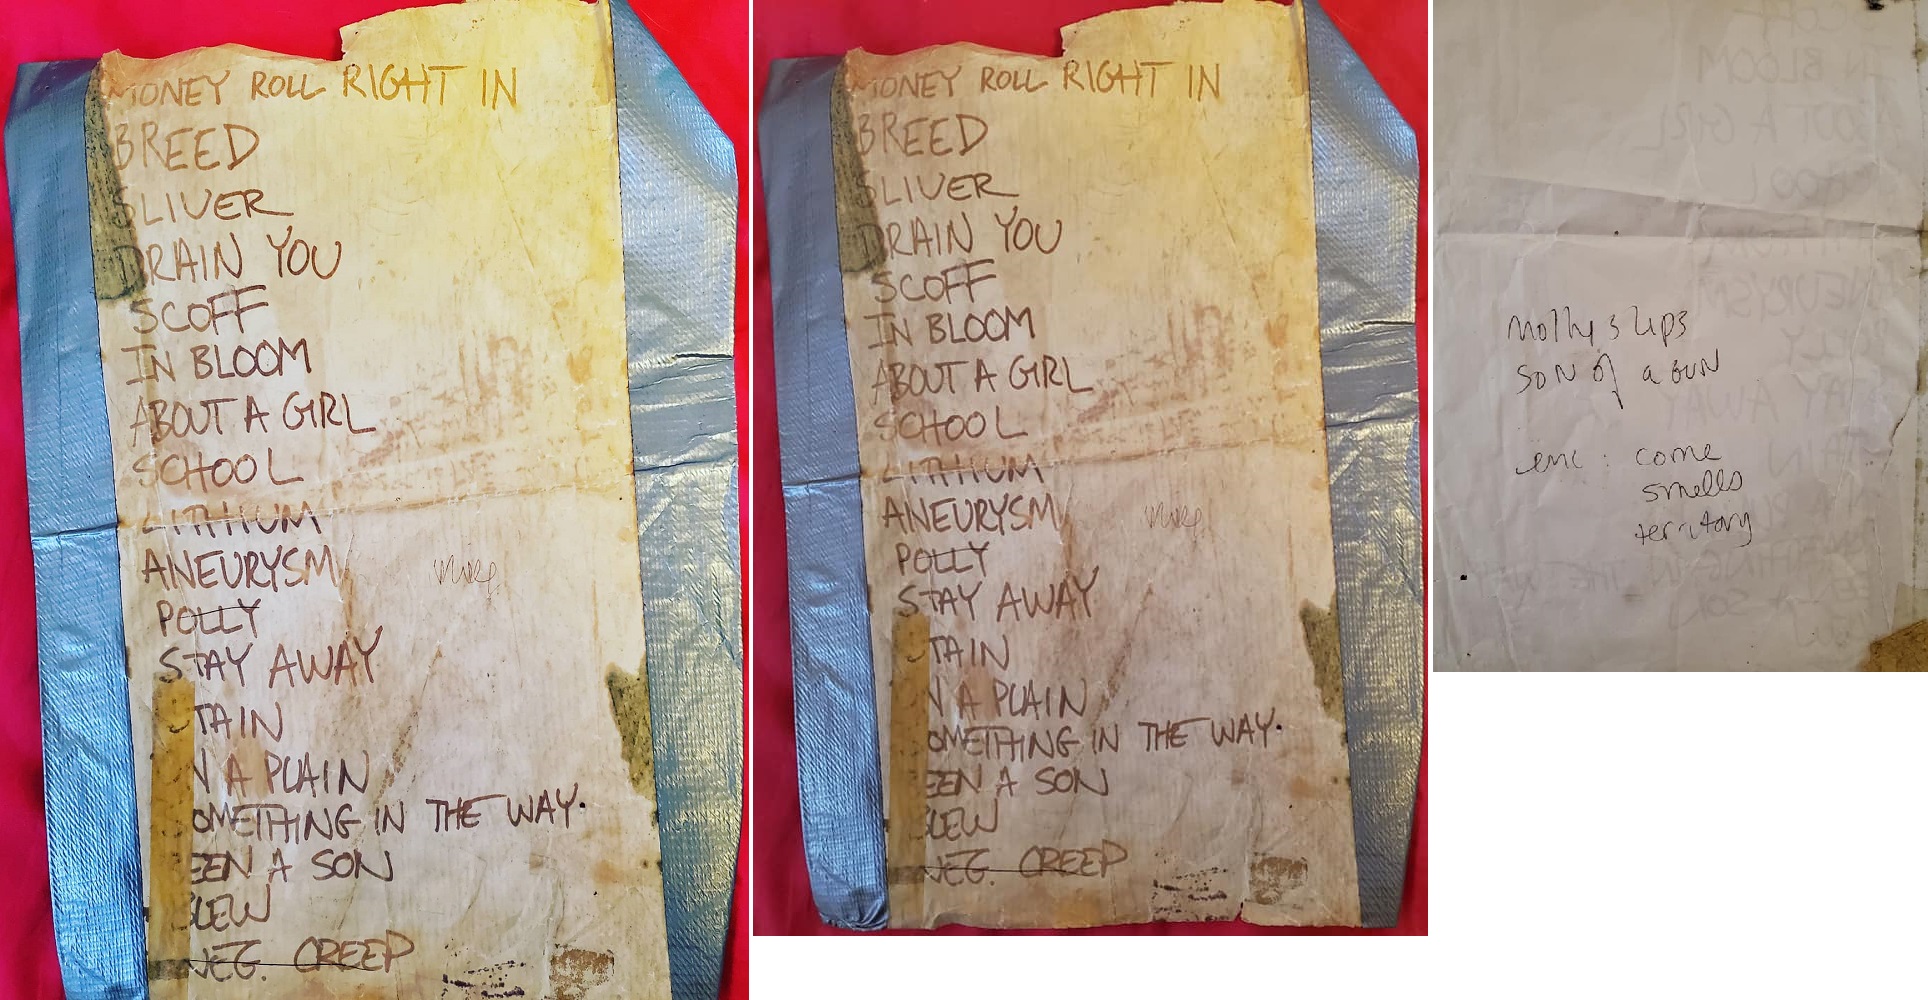 MONEY ROLL RIGHT IN
BREED
SLIVER
DRAIN YOU
SCOFF
IN BLOOM
ABOUT A GIRL
SCHOOL
LITHIUM
ANEURYSM
POLLY
STAY AWAY
TAIN
N A PLAIN
OMETHING IN THE WAY.
EEN A SON
SLEW
NEG. CREEP
MONEY ROLL RIGHT IN
BREED
SLIVER
DRAIN YOU
SCOFF
IN BLOOM
ABOUT A GIRL
SCHOOL
LITHIUM
ANEURYSM
POLLY
STAY AWAY
TAIN
N A PLAIN
OMETHING IN THE WAY.
EEN A SON
SLEW
NEG. CREEP
Mollys Lips
SON of a GUN
enc: come
smells
territory